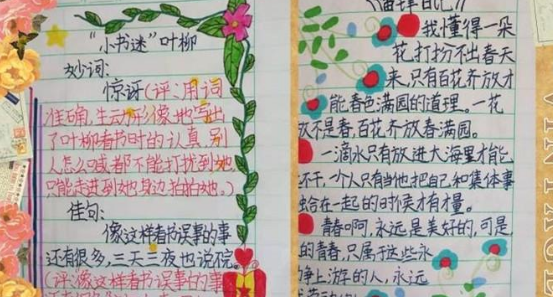 “小书迷”叶柳
妙词:
惊讶(评:用词
准确,生动形象地写出
了叶柳看书时的认真,别
人怎么喊都不能打扰到她,
只能走到她身边拍拍她。)
佳句:
像这样看书误事的事
还有很多,三天三夜也说
(评:像这样看书误事的事
《雷锋日记》
我懂得一朵
花,打扮不出春天
来,只有百花齐放才
能春色满园的道理。一花
放不是春,百花齐放春满园。
一滴水只有放进大海里才能
不干,一个人只有当他把自己和集体事
合在一起的时候才有力量。
青春啊,永远是美好的,可是
的青春,只属于这些永
争上游的人,永远